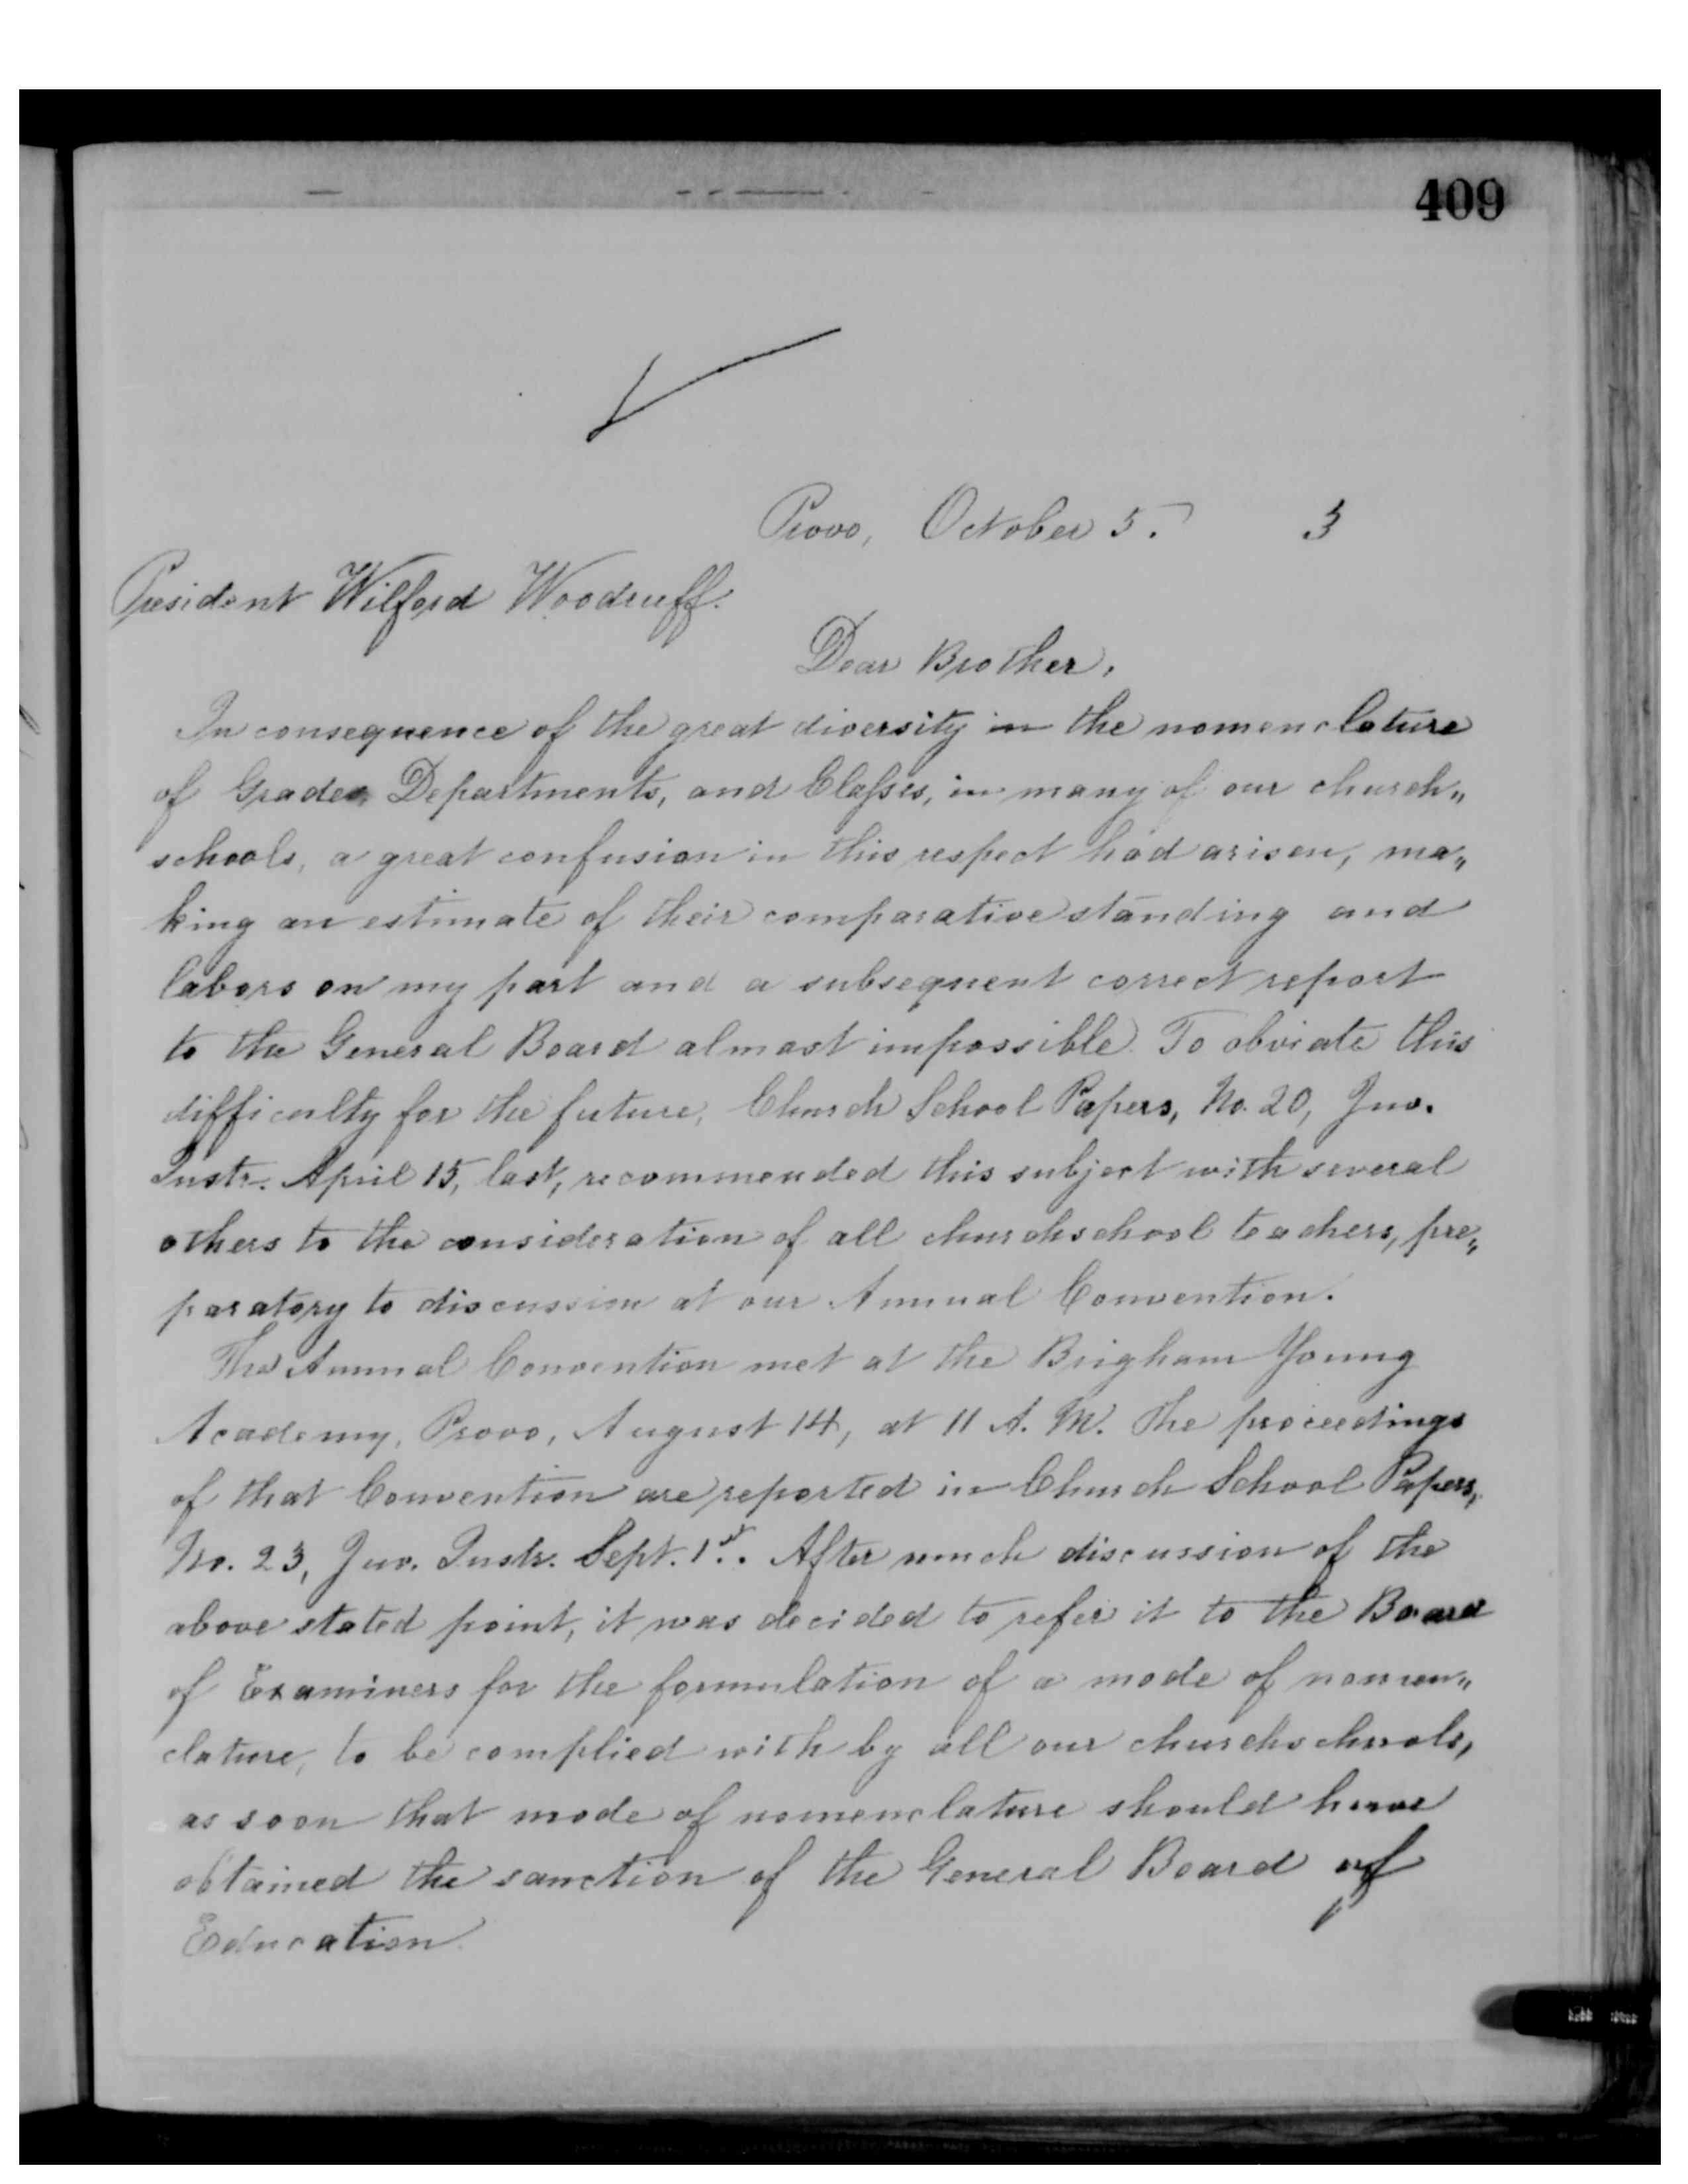 409
Provo, October 5. 3
President Wilford Woodruff.
Dear Brother,
In consequence of the great diversity in the nomenclature
of Grades, Departments, and Claſses, in many of our church„
schools, a great confusion in this respect had arisen, ma„
king an estimate of their comparative standing and
labors on my part and a subsequent correct report
to the General Board almost impossible. To obviate this
difficulty for the future, Church School Papers, No. 20, Juv.
Instr. April 15, last, recommended this subject with several
others to the consideration of all churchschool teachers, pre„
paratory to discussion at our Annual Convention.
The Annual Convention met at the Brigham Young
Academy, Provo, August 14, at 11 A. M. The proceedings
of that Convention are reported in Church School Papers,
No. 23, Juv. Instr. Sept. 1st. After much discussion of the
above stated point, it was decided to refer it to the Board
of Examiners for the formulation of a mode of nomen„
clature, to be complied with by all our churchschools,
as soon that mode of nomenclature should have
obtained the sanction of the General Board of
Education